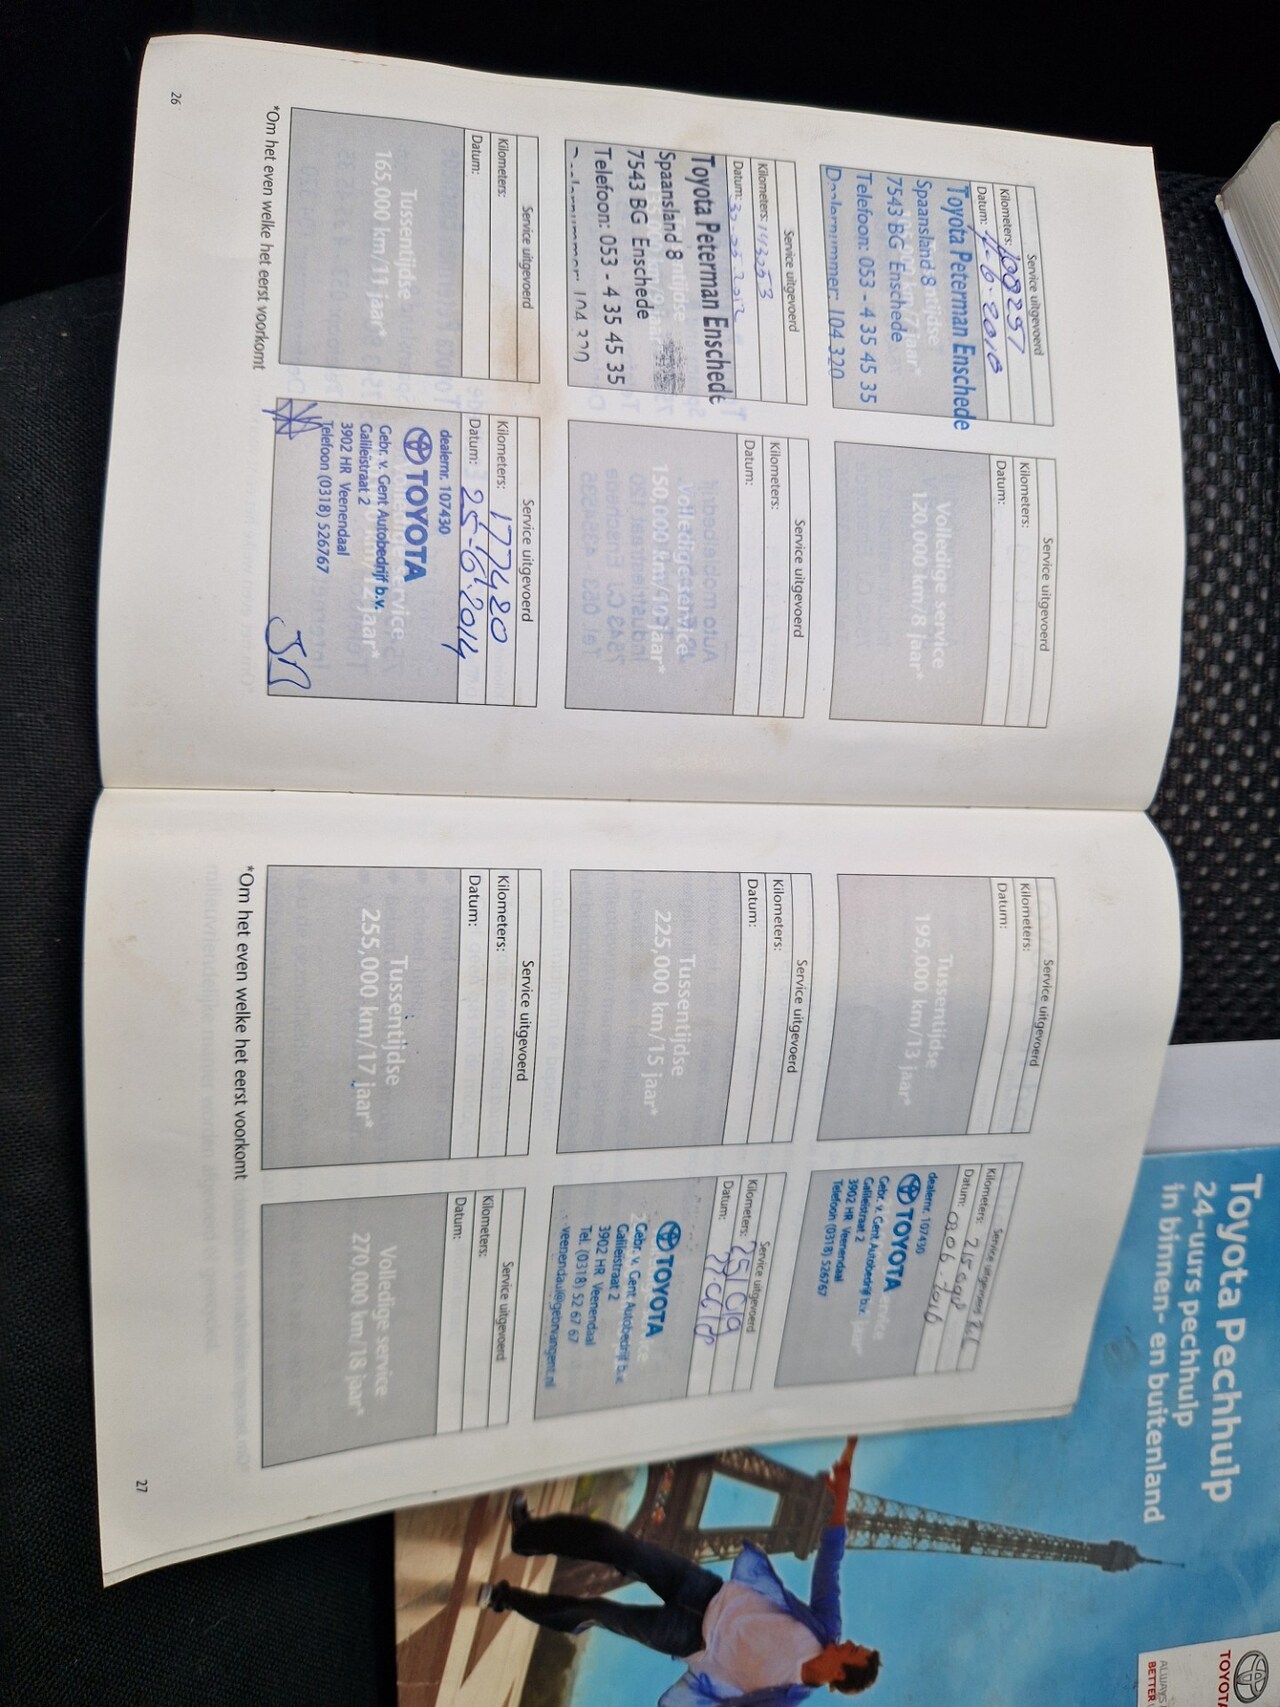 Service uitgevoerd
Kilometers: 100297
Datum: 6.2010
Toyota Peterman Enschede
Spaansland 8
7543 BG Enschede
Telefoon: 053 - 4 35 45 35
Dealernummer: 104 320
Service uitgevoerd
Kilometers:
Datum:
Volledige service
120,000 km/8 jaar*
Service uitgevoerd
Kilometers: 143253
Datum: 2012
Toyota Peterman Enschede
Spaansland 8
7543 BG Enschede
Telefoon: 053 - 4 35 45 35
104 320
Service uitgevoerd
Kilometers:
Datum:
Volledige service
150,000 km/10 jaar*
Service uitgevoerd
Kilometers:
Datum:
Tussentijdse
165,000 km/11 jaar*
Service uitgevoerd
Kilometers: 177480
Datum: 25-6-2014
dealernr. 107430
TOYOTA
Gebr. v. Gent Autobedrijf b.v.
Galileïstraat 2
3902 HR Veenendaal
Telefoon (0318) 526767
*Om het even welke het eerst voorkomt
26
Service uitgevoerd
Kilometers:
Datum:
Tussentijdse
195,000 km/13 jaar*
Service uitgevoerd
Kilometers:
Datum: 0306-2016
dealernr. 107430
TOYOTA
Gebr. v. Gent Autobedrijf b.v.
Galileïstraat 2
3902 HR Veenendaal
Telefoon (0318) 526767
Service uitgevoerd
Kilometers:
Datum:
Tussentijdse
225,000 km/15 jaar*
Service uitgevoerd
Kilometers: 251019
Datum:
TOYOTA
Gebr. v. Gent Autobedrijf b.v.
Galileïstraat 2
3902 HR Veenendaal
Tel. (0318) 52 67 67
veenendaal@gebrvangent.nl
Service uitgevoerd
Kilometers:
Datum:
Tussentijdse
255,000 km/17 jaar*
Service uitgevoerd
Kilometers:
Datum:
Volledige service
270,000 km/18 jaar*
*Om het even welke het eerst voorkomt
27
Toyota Pechhulp
24-uurs pechhulp
in binnen- en buitenland
TOYOTA
ALWAYS
BETTER